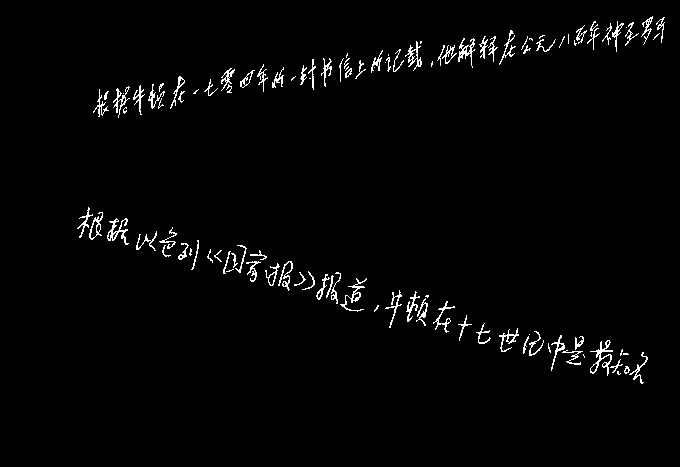 根据牛顿在一七零四年所一封书信上所记载，他解释在公元八百年神圣罗马
根据以色列《国家报》报道，牛顿在十七世纪中是最知名